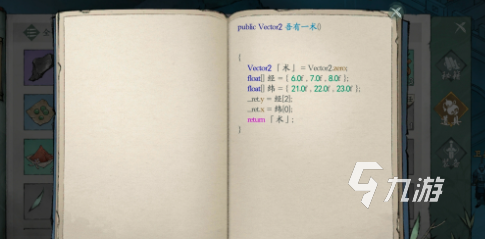 public Vector2 吾有一术()
{
Vector2 「术」 = Vector2.zero;
float[] 经 = { 6.0f , 7.0f , 8.0f };
float[] 纬 = { 21.0f , 22.0f , 23.0f };
_ret.y = 经[2];
_ret.x = 纬[0];
return 「术」;
}
九游